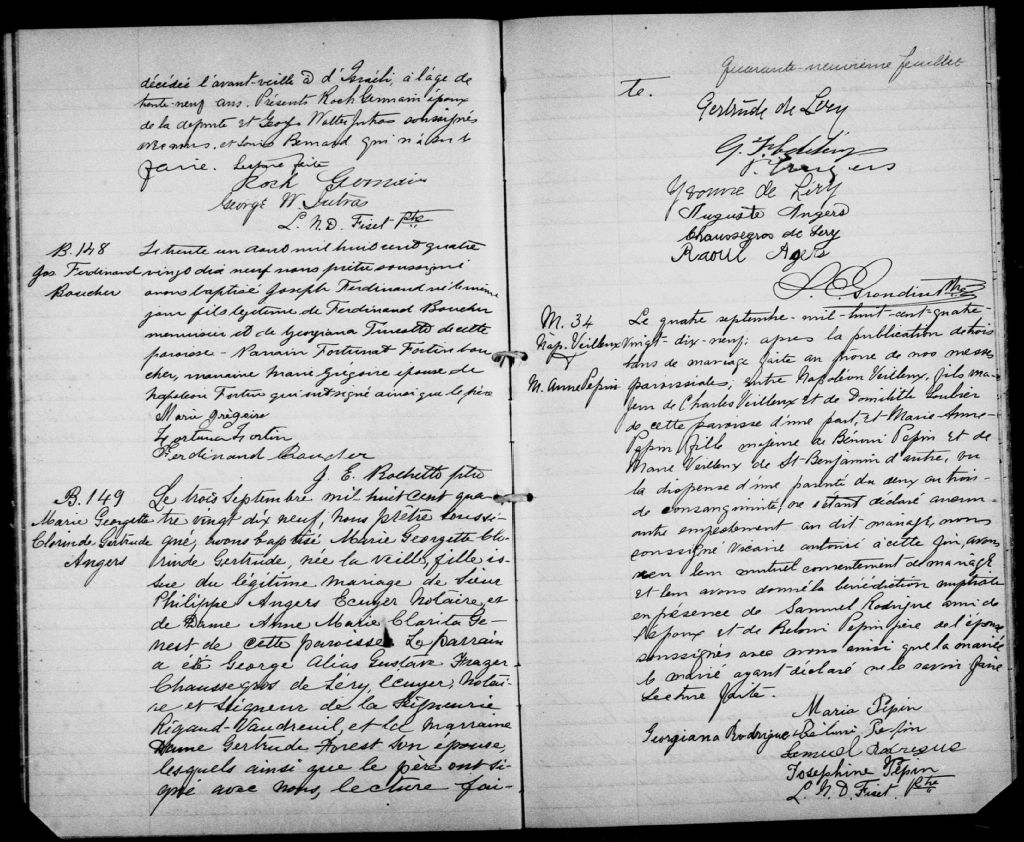 décédée l'avant-veille à d'Israëli, à l'âge de
trente-neuf ans. Présents Roch Germain époux
de la défunte et George Walter Jutras soussignés
avec nous, et Louis Bernard qui n'a su le
faire. Lecture faite
Roch Germain
George W. Jutras
L. N. D. Fiset Ptre
B. 148
Jos Ferdinand
Boucher
Le trente un août mil huit cent quatre
vingt dix neuf nous prêtre soussigné
avons baptisé Joseph Ferdinand né le même
jour fils légitime de Ferdinand Boucher
menuisier et de Georgiana Turcotte de cette
paroisse - Parrain Fortunat Fortin bou
cher, marraine Marie Grégoire épouse de
Napoléon Fortin qui ont signé ainsi que le père
Marie Grégoire
Fortuna Fortin
Ferdinand Boucher
J. E. Rochette ptre
B. 149
Marie Georgette
Clorinde Gertrude
Angers
Le trois Septembre mil huit cent qua-
tre vingt dix neuf, Nous prêtre soussi-
gné, avons baptisé Marie Georgette Clo-
rinde Gertrude, née la veille, fille is-
sue du légitime mariage de Sieur
Philippe Angers Ecuyer Notaire, et
de Dame Anne Marie Clarila Ge-
nest de cette paroisse. Le parrain
a été George Alias Gustave Frazer
Chaussegros de Léry, Ecuyer, Notai-
re et Seigneur de la Seigneurie
Rigaud-Vaudreuil, et la marraine
Dame Gertrude Forest son épouse,
lesquels ainsi que le père ont si-
gné avec nous, lecture fai-
Quarante-neuvième feuillet
te.
Gertrude de Léry
G.
Angers
Yvonne de Léry
Auguste Angers
Chaussegros de Léry
Raoul Agers
Grondin Ptre
M. 34
Nap. Veilleux
&
M. Anne Pepin
Le quatre septembre - mil - huit - cent - quatre-
vingt - dix - neuf; après la publication de trois
bans de mariage faite au prone de nos messes
paroissiales, entre Napoléon Veilleux, fils ma-
jeur de Charles Veilleux et de Domitile Loubier
de cette paroisse d'une part, et Marie-Anne
Pepin fille majeure de Bénoni Pepin et de
Marie Veilleux de St-Benjamin d'autre, vu
la dispense d'une parenté du deux au trois-
de consanguinité, ne s'étant déclaré aucun
autre empêchement au dit mariage, nous
soussigné Vicaire autorisé à cette fin, avons
reçu leur mutuel consentement de mariage
et leur avons donné la bénédiction nuptiale
en présence de Samuel Rodrigue ami de
l'époux et de Béloni Pepin père de l'épouse
soussignés avec nous ainsi que la mariée
le marié ayant déclaré ne le savoir faire
Lecture faite.
Maria Pepin
Georgiana Rodrigue Béloni Pepin
Samuel Rodrigue
Josephine Pepin
L. N. D. Fiset. Ptre